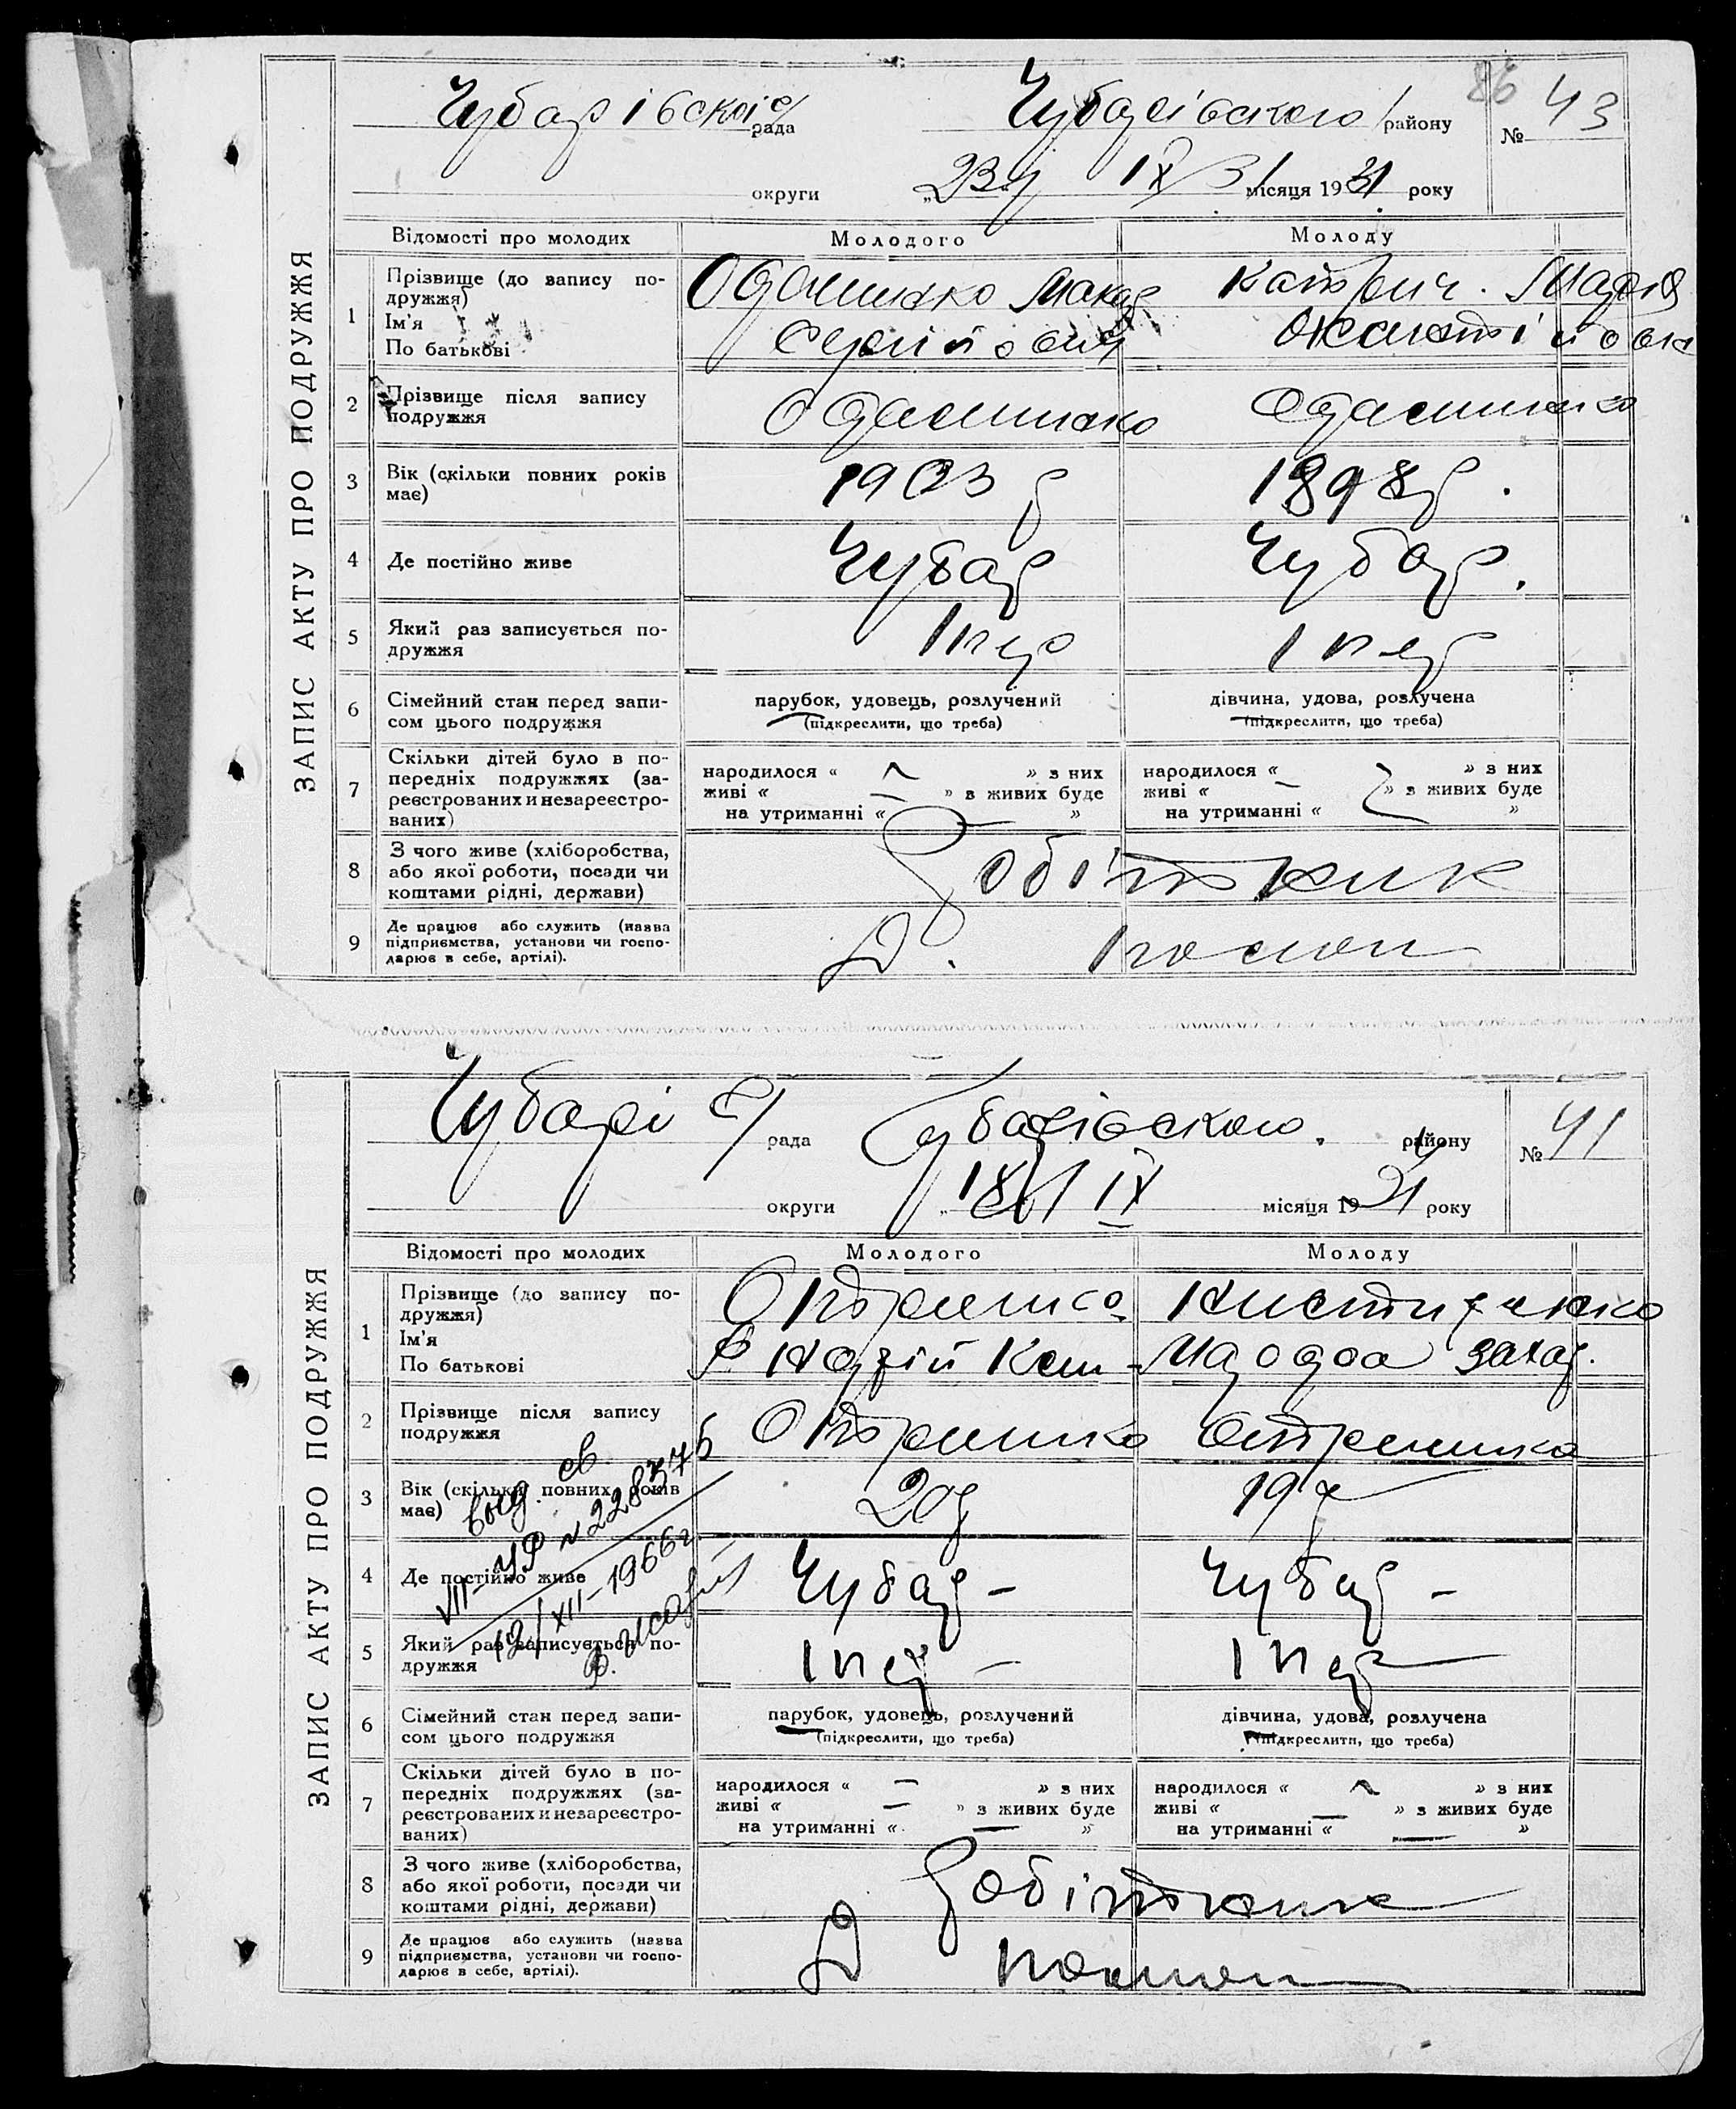 ЗАПИС АКТУ ПРО ПОДРУЖЖЯ
86
Чубарівскої с/ рада Чубарівского району № 43
округи „23/ IX 31 місяця 1931 року
Відомості про молодих Молодого Молоду
1 Прізвище (до запису подружжя)
Ім'я
По батькові
Одашшко Макар
Сергійович
Катрич. Марія
2 Прізвище після запису подружжя
3 Вік (скільки повних років має) 1903 р 1898р.
4 Де постійно живе Чубар Чубар.
5 Який раз записується подружжя 1 пер 1 пер
6 Сімейний стан перед записом цього подружжя парубок, удовець, розлучений дівчина, удова, розлучена
(підкреслити, що треба) (підкреслити, що треба)
7 Скільки дітей було в попередніх подружжях (зареєстрованих и незареєстрованих)
народилося « — » з них народилося « — » з них
живі « — » з живих буде живі « » з живих буде
на утриманні « — » на утриманні « »
8 З чого живе (хліборобства, або якої роботи, посади чи коштами рідні, держави) Робітник
9 Де працює або служить (назва підприємства, установи чи господарює в себе, артілі).
ЗАПИС АКТУ ПРО ПОДРУЖЖЯ
Чубарі с/ рада Чубарівского. району № 41
округи „18/ IX місяця 1931 року
Відомості про молодих Молодого Молоду
1 Прізвище (до запису подружжя)
Ім'я
По батькові
Захар.
2 Прізвище після запису подружжя
3 Вік (скільки повних років має) 20р 19р
выд. св.
VII-УР № 228375
12/XII-1966г.
4 Де постійно живе Чубар – Чубар –
5 Який раз записується подружжя 1 пер – 1 пер
6 Сімейний стан перед записом цього подружжя парубок, удовець, розлучений дівчина, удова, розлучена
(підкреслити, що треба) (підкреслити, що треба)
7 Скільки дітей було в попередніх подружжях (зареєстрованих и незареєстрованих)
народилося « — » з них народилося « — » з них
живі « — » з живих буде живі « — » з живих буде
на утриманні « — » на утриманні « — »
8 З чого живе (хліборобства, або якої роботи, посади чи коштами рідні, держави) Робітник
9 Де працює або служить (назва підприємства, установи чи господарює в себе, артілі).